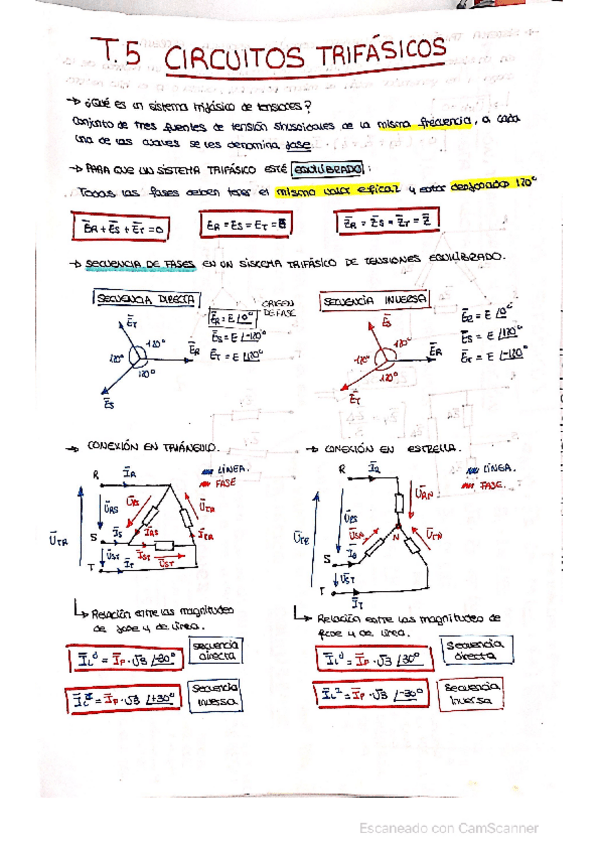 T.5 CIRCUITOS TRIFÁSICOS
→ ¿Qué es un sistema trifásico de tensiones?
Conjunto de tres fuentes de tensión sinusoidales de la misma frecuencia, a cada
una de las cuales se les denomina fase.
→ PARA QUE UN SISTEMA TRIFÁSICO ESTÉ EQUILIBRADO:
Todas las fases deben tener el mismo valor eficaz y estar desfasadas 120º
E̅R + E̅S + E̅T = 0
ER = ES = ET = E
Z̅R = Z̅S = Z̅T = Z̅
→ SECUENCIA DE FASES EN UN SISTEMA TRIFÁSICO DE TENSIONES EQUILIBRADO.
SECUENCIA DIRECTA
E̅T
120º
120º
120º
E̅R
E̅S
E̅R = E /0º
ORIGEN
DE FASE
E̅S = E /-120º
E̅T = E /120º
SECUENCIA INVERSA
E̅S
-120º
-120º
E̅R
E̅T
E̅R = E /0º
E̅S = E /120º
E̅T = E /-120º
→ CONEXIÓN EN TRIÁNGULO.
R
I̅R
LÍNEA
FASE
U̅TR
U̅RS
U̅RS
U̅TR
S
I̅S
I̅RS
I̅TR
U̅ST
I̅ST
U̅ST
T
I̅T
→ CONEXIÓN EN ESTRELLA.
R
I̅R
LÍNEA.
FASE.
U̅TR
U̅RS
U̅RN
N
U̅TN
S
U̅ST
T
I̅T
Relación entre las magnitudes
de fase y de línea.
I̅L = I̅F · √3 /-30º
secuencia
directa
I̅L = I̅F · √3 /+30º
Secuencia
inversa
Relación entre las magnitudes de
fase y de línea.
= I̅F · √3 /30º
Secuencia
directa
= I̅F · √3 /-30º
Secuencia
Inversa
Escaneado con CamScanner